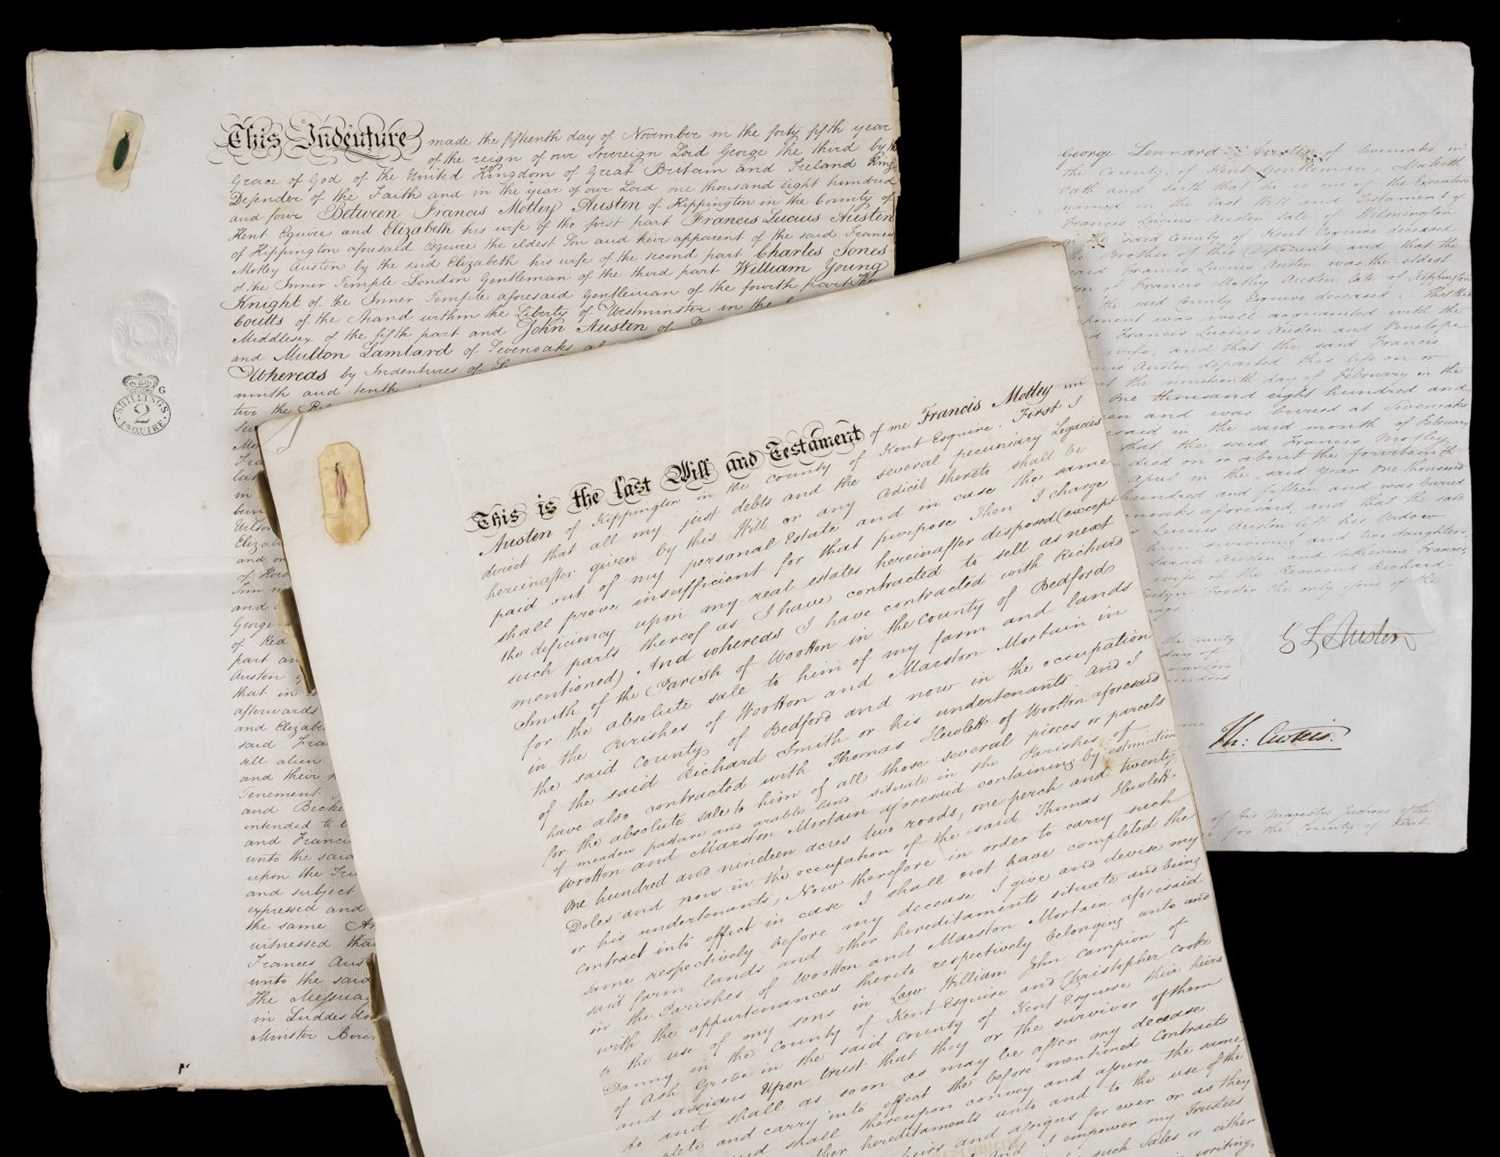 This Indenture made the fifteenth day of November in the forty fifth year
of the reign of our Sovereign Lord George the third by the
Grace of God of the United Kingdom of Great Britain and Ireland King
Defender of the Faith and in the year of our Lord one thousand eight hundred
and four Between Francis Motley Austen of Kippington in the County of
Kent Esquire and Elizabeth his wife of the first part Francis Lucius Austen
of Kippington aforesaid Esquire the eldest Son and heir apparent of the said Francis
Motley Austen by the said Elizabeth his wife of the second part Charles Jones
of the Inner Temple London Gentleman of the third part William Young
Knight of the Inner Temple aforesaid Gentleman of the fourth part
Coutts of the Strand within the Liberty of Westminster in the
Middlesex of the fifth part and John Austen of
and Multon Lambard of Sevenoaks
Whereas by Indentures of
ninth and tenth
tive the
SHILLINGS
2
ESQUIRE
G
in
Elizab
and
of
George
of
part an
Austen
that in
afterwards
and Elizab
said Fran
all
and their
Tenement
and
intended to
and Francis
unto the said
upon the
and subject
expressed and
the same
witnessed tha
Frances Aust
unto the said
the Messua
in
Minister
This is the last Will and Testament of me Francis Motley
Austen of Kippington in the county of Kent Esquire. First I
direct that all my just debts and the several pecuniary Legacies
hereinafter given by this Will or any Codicil thereto shall be
paid out of my personal Estate and in case the same
shall prove insufficient for that purpose Then I charge
the deficiency upon my real estates hereinafter disposed (except
such parts thereof as I have contracted to sell as next
mentioned) And whereas I have contracted with Richard
Smith of the Parish of Wootton in the County of Bedford
for the absolute sale to him of my farm and lands
in the Parishes of Wootton and Marston Mortain in
the said County of Bedford and now in the occupation
of the said Richard Smith or his undertenants and I
have also contracted with Thomas Hewlett of Wootton aforesaid
for the absolute sale to him of all those several pieces or parcels
of meadow pasture and arable land situate in the Parishes of
Wootton and Marston Mortain aforesaid containing by estimation
one hundred and nineteen acres two roods, one perch and twenty
Doles and now in the occupation of the said Thomas Hewlett
or his undertenants, Now therefore in order to carry such
contract into effect in case I shall not have completed the
same respectively before my decease I give and devise my
said farm lands and other hereditaments situate and being
in the Parishes of Wootton and Marston Mortain aforesaid
with the appurtenances thereto respectively belonging unto and
to the use of my sons in Law William John Campion of
Danny in the County of Kent Esquire and Christopher Cooke
of Ash Grove in the said County of Kent Esquire their heirs
and assigns Upon trust that they or the survivor of them
do and shall as soon as may be after my decease
plete and carry into effect the before mentioned Contracts
shall thereupon convey and assure the same
other hereditaments unto and to the use of the
heirs and assigns for ever or as they
And I empower my Trustees
such Sales or either
writing,
George Lennard Austen of Sevenoaks in
the County of Kent Gentleman Maketh
Oath and saith that he is one of the Executors
named in the last Will and Testament of
Francis Lucius Austen late of Wilmington
in the said County of Kent Esquire deceased
the Brother of this Deponent and that the
said Francis Lucius Austen was the eldest
son of Francis Motley Austen late of Kippington
in the said County Esquire deceased. That this
Deponent was well acquainted with the
said Francis Lucius Austen and Penelope
wife, and that the said Francis
Lucius Austen departed this life on or
about the nineteenth day of February in the
one thousand eight hundred and
fifteen and was buried at Sevenoaks
aforesaid in the said month of February
that the said Francis Motley
died on or about the fourteenth
April in the said year One thousand
hundred and fifteen and was buried
Sevenoaks aforesaid, and that the said
Lucius Austen left his Widow
him surviving and two daughters
Sarah Austen and Catherine Frances
wife of the Reverend Richard
the only
G L Austen
the County
day of
Th: Curteis.
of his Majesty's Justices of the
for the County of Kent.